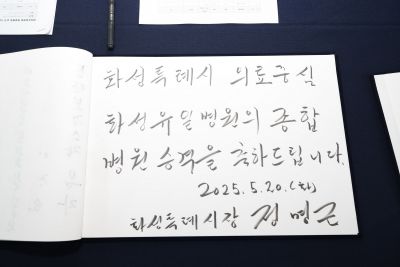 화성특례시 의료중심
화성유일병원의 종합
병원 승격을 축하드립니다.
2025.5.20.(화)
화성특례시장 정명근